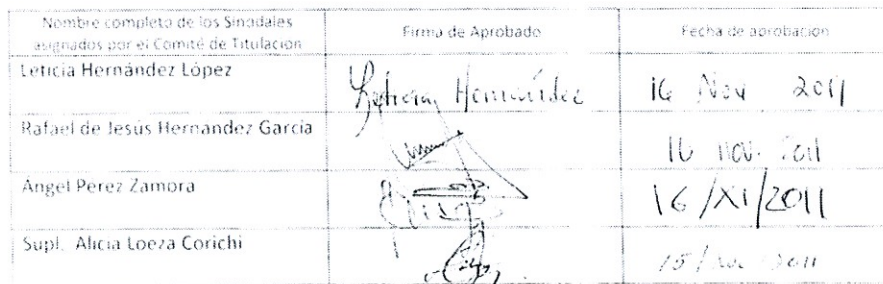 Nombre completo de los Sinodales
asignados por el Comité de Titulacion
Firma de Aprobado
Fecha de aprobacion
Leticia Hernández López
Leticia Hernández
16 Nov 2011
Rafael de Jesús Hernandez Garcia
16 nov. 2011
Ángel Perez Zamora
16/XI/2011
Supl. Alicia Loeza Corichi
15/ 2011